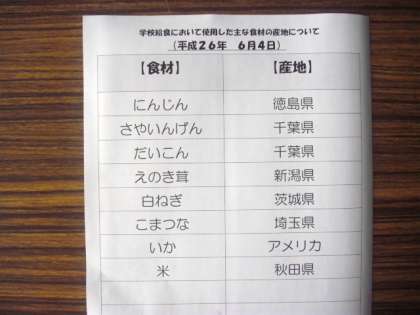 学校給食において使用した主な食材の産地について
(平成26年 6月4日)
【食材】 【産地】
にんじん 徳島県
さやいんげん 千葉県
だいこん 千葉県
えのき茸 新潟県
白ねぎ 茨城県
こまつな 埼玉県
いか アメリカ
米 秋田県